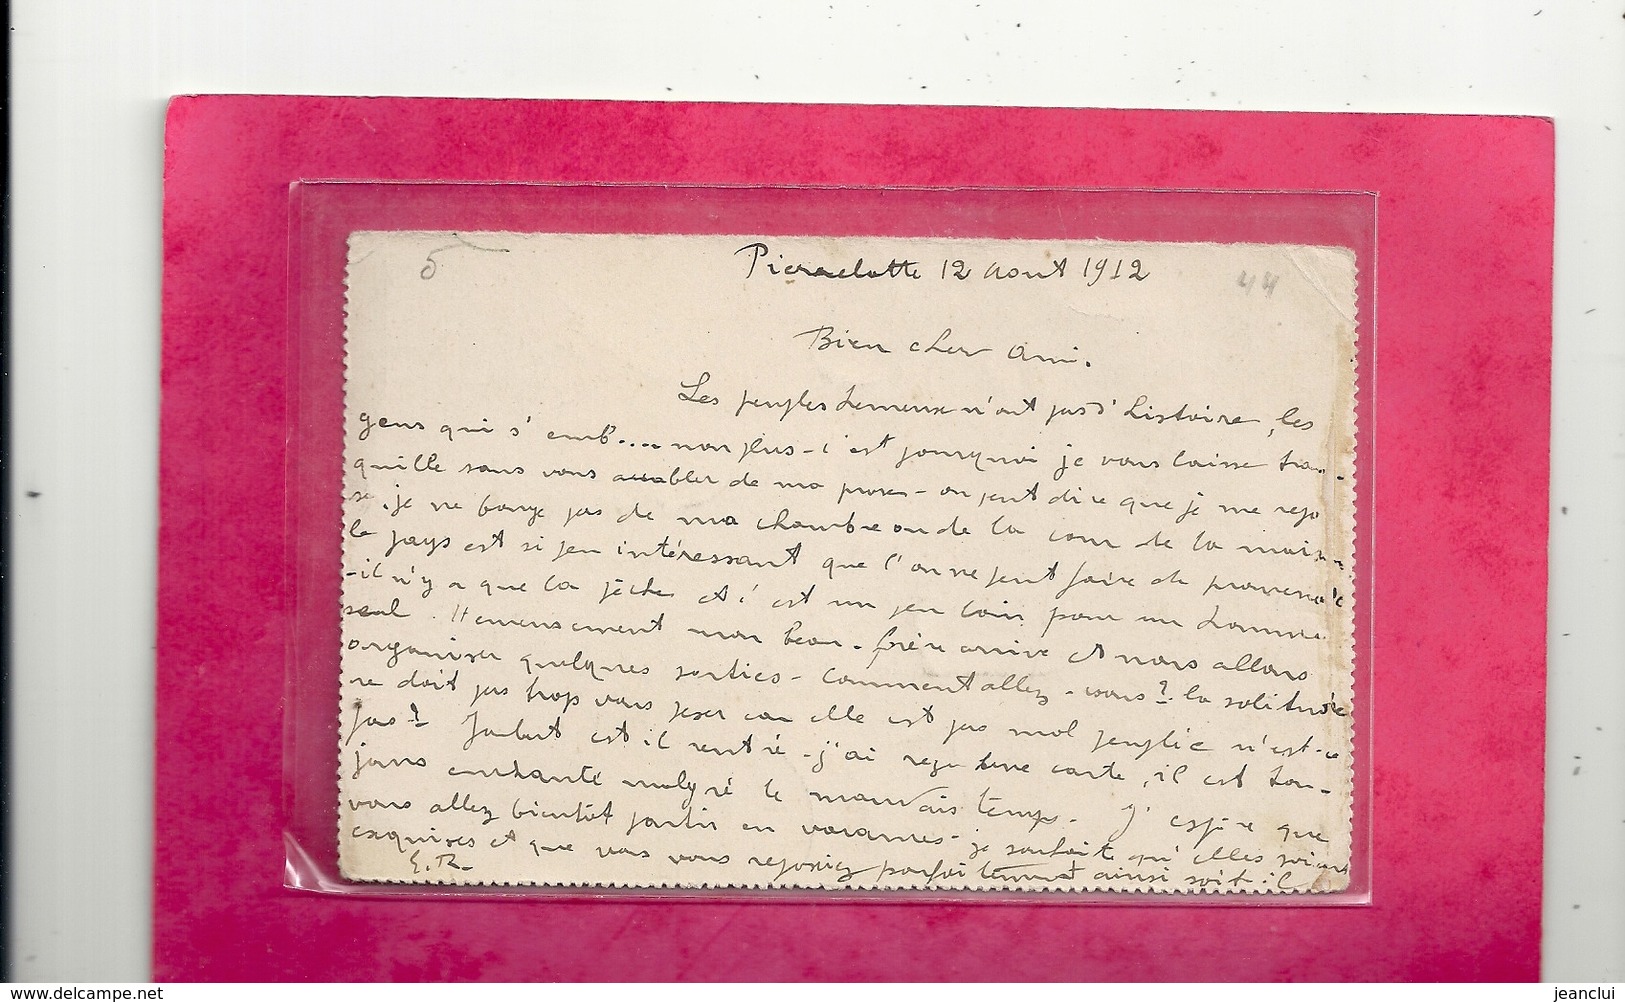 5
Pierrelatte 12 Aout 1912
44
Bien cher Ami.
Les peuples heureux n'ont pas d'histoire, les
gens qui s'emb.... non plus - c'est pourquoi je vous laisse tran-
quille sans vous accabler de ma prose - on peut dire que je me repo
se, je ne bouge pas de ma chambre ou de la cour de la maison
le pays est si peu intéressant que l'on ne peut faire de promenade
- il n'y a que la pêche et c'est un peu loin pour un homme
seul. Heureusement mon beau-frère arrive et nous allons
organiser quelques sorties - Comment allez-vous? la solitude
ne doit pas trop vous peser car elle est pas mal peuplée n'est-ce
pas? Joubert est il rentré - j'ai reçu une carte, il est tou-
jours enchanté malgré le mauvais temps. J'espère que
vous allez bientôt partir en vacances - je souhaite qu'elles soient
exquises et que vous vous reposiez parfaitement ainsi soit-il
E.R.
www.delcampe.net
jeanclui